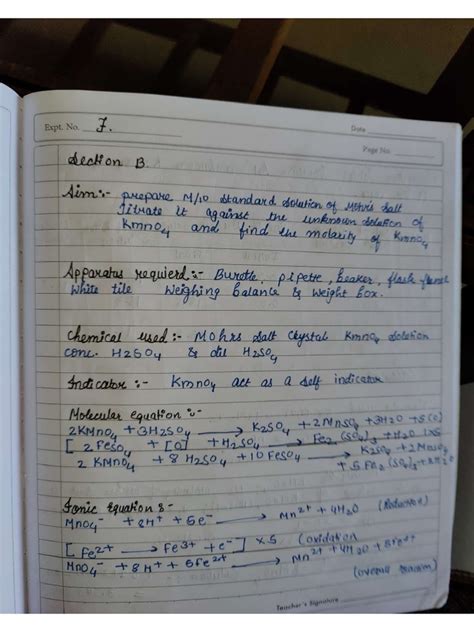 Expt. No. 7.
Date
Page No.
Section B
Aim:- prepare M/10 standard solution of Mohrs salt
titrate it against the unknown solution of
KmnO4 and find the molarity of KmnO4
Apparatus requierd:- Burette, pipette, beaker, flask funnel
white tile Weighing balance & Weight box.
Chemical used:- Mohrs salt Crystal KmnO4 solution
conc. H2SO4 & dil H2SO4
Indicator:- KmnO4 act as a self indicator
Molecular equation:-
2KMnO4 + 3H2SO4 → K2SO4 + 2MnSO4 + 3H2O + 5(O)
[2FeSO4 + [O] + H2SO4 → Fe2(SO4)3 + H2O] X5
2KMnO4 + 8H2SO4 + 10FeSO4 → K2SO4 + 2MnSO4
+ 5Fe2(SO4)3 + 8H2O
Ionic Equation:-
MnO4- + 8H+ + 5e- → Mn2+ + 4H2O (reduction)
[Fe2+ → Fe3+ + e-] X5 (oxidation
MnO4- + 8H+ + 5Fe2+ → Mn2+ + 4H2O + 5Fe3+
(overall reaction)
Teacher's Signature